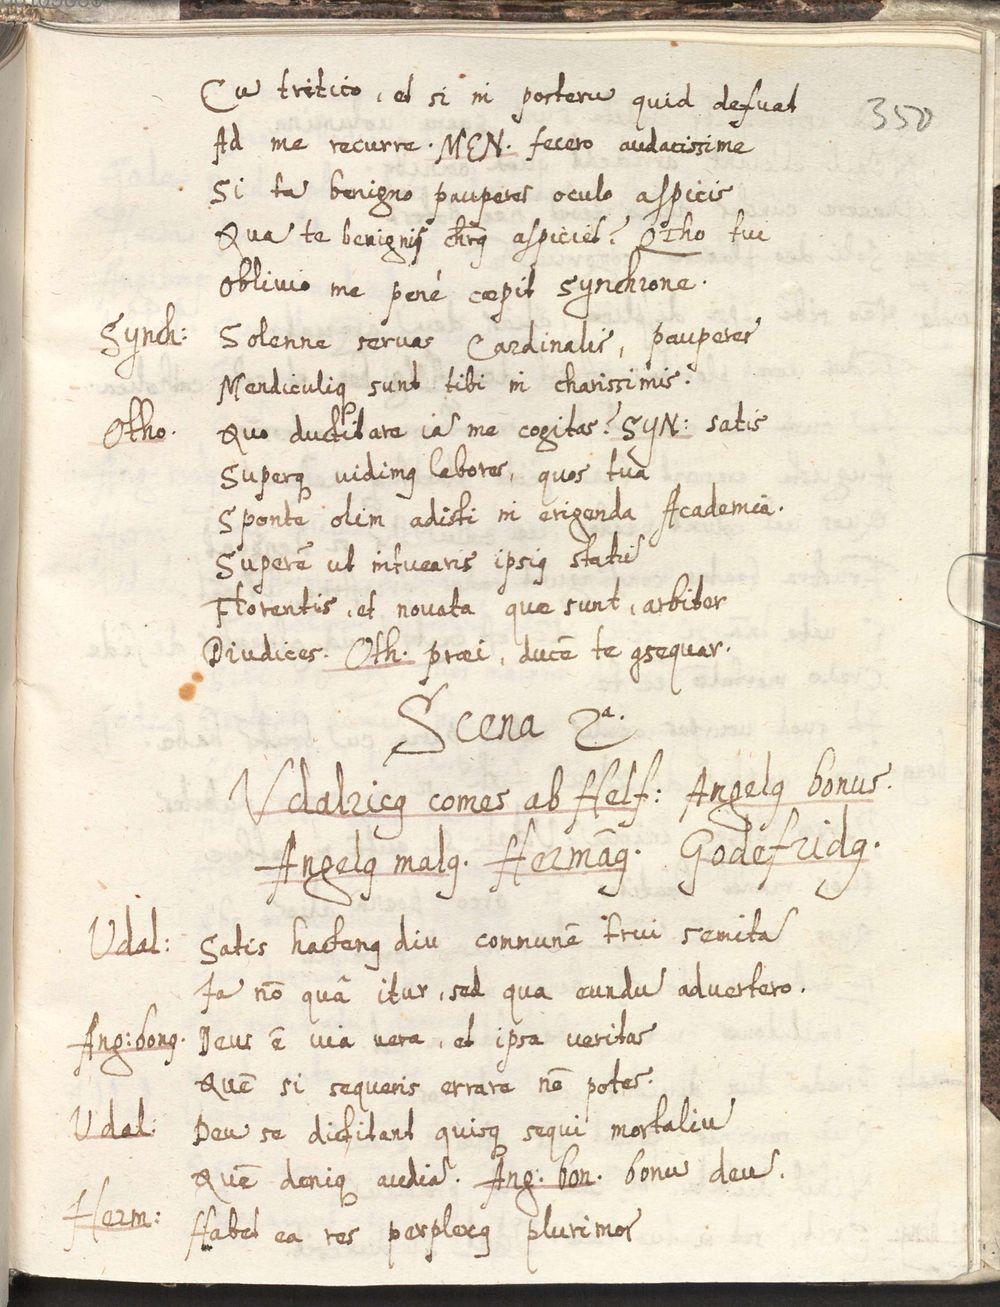 Cū tritico, et si in posterū quid defuat
350
Ad me recurre. MEN. fecero audacissime
Si tā benigno pauperes oculo aspicis
Quā te benignus chrūs aspiciet? Otho tui
Oblivio me penè cœpit Synchrone.
Synch: Solenne servas Cardinalis, pauperes
Mendiculiq sunt tibi in charissimis.
Otho. Quo ductitare iā me cogitas? SYN: satis
Superq vidimq labores, quos tuā
Sponte olim adisti in erigenda Academiā.
Superē ut intuearis ipsiq statū
Florentis, et novata quæ sunt, arbiter
Diiudices. Oth. præi, ducē te ɔsequar.
Scena 2a.
Vdalricq comes ab Helf: Angelq bonus.
Angelq malq. Hermāq. Godefridq.
Udal: Satis hactenq diu communē trivi semitā
Iā nō quā itur, sed qua eundū advertero.
Ang: bonq. Deus ē via vera, et ipsa veritas
Quē si sequeris errare nō potes.
Udal: Deū se dictitant quisq sequi mortaliū
Quē deniq audiā. Ang: bon. bonū deū.
Herm: Habet ea res perplexq plurimos